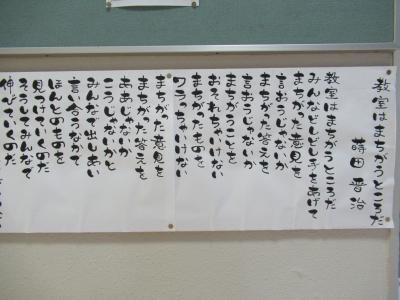 教室はまちがうところだ
蒔田晋治
教室はまちがうところだ
みんなどしどし手をあげて
まちがった意見を
言おうじゃないか
まちがった答えを
言おうじゃないか
まちがうことを
おそれちゃいけない
まちがったものを
ワラっちゃいけない
まちがった意見を
まちがった答えを
ああじゃないか
こうじゃないかと
みんなで出しあい
言い合うなかで
ほんとのものを
見つけていくのだ
そうしてみんなで
伸びていくのだ